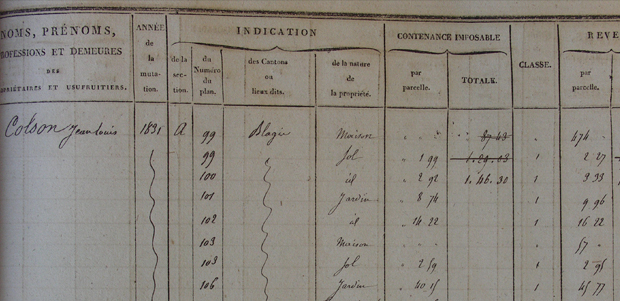 NOMS, PRÉNOMS, ANNÉE INDICATION CONTENANCE IMPOSABLE REVE
PROFESSIONS ET DEMEURES de la mutation. de la section. du Numéro du plan. des Cantons ou lieux dits. de la nature de la propriété. par parcelle. TOTALE. CLASSE. par parcelle.
DES
PROPRIÉTAIRES ET USUFRUITIERS.
Colson Jean Louis 1831 A 99 Blagie Maison 87 43 474
99 Sol 1 99 1. 24. 03 1 2 27
100 id 2 92 1. 46. 30 1 3 33
101 Jardin 8 74 1 9 96
102 id 14 22 1 16 22
103 Maison 57
103 Sol 2 59 1 2 95
106 Jardin 40 15 1 45 77